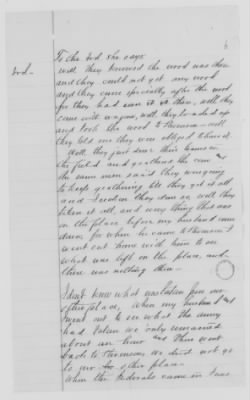 6
3rd-
To the 3rd she says
well they knowed the wood was there
and they could not get any wood
and they came specially after the wood
for they had seen it there, well, they
came with wagons, well, they loaded up
and took the wood to Stevenson - well
they told me they were obliged to have it.
Well, they just drove their teams in
the field and gathered the corn and
the same men said they was going
to keep gathering till they got it all
and I reckon they done so, well they
taken it all, and every thing that was
on the place before my husband come
down, for when he came to Stevenson I
went out home with him to see
what was left on the place, and
there was nothing then -
I don't know what was taken from our
other place, when my husband and
I went out to see what the army
had taken we only remained
about an hour and then went
back to Stevenson, we did not go
to our other place -
When the Federals came in I was